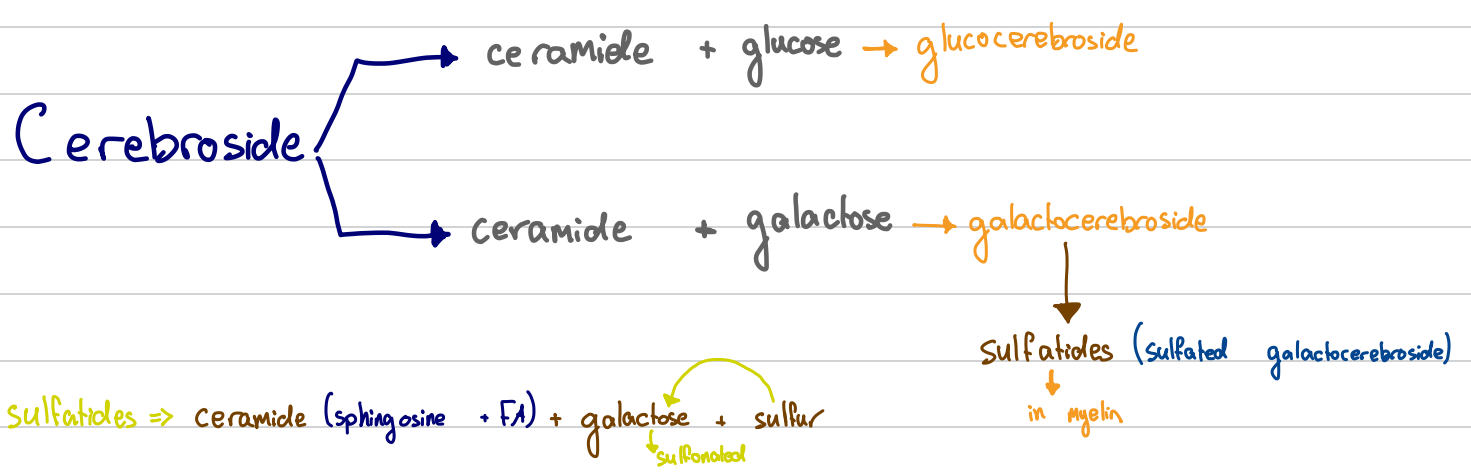 ceramide + glucose → glucocerebroside
Cerebroside
ceramide + galactose → galactocerebroside
sulfatides (sulfated galactocerebroside)
in myelin
sulfatides => ceramide (sphingosine + FA) + galactose + sulfur
sulfonated